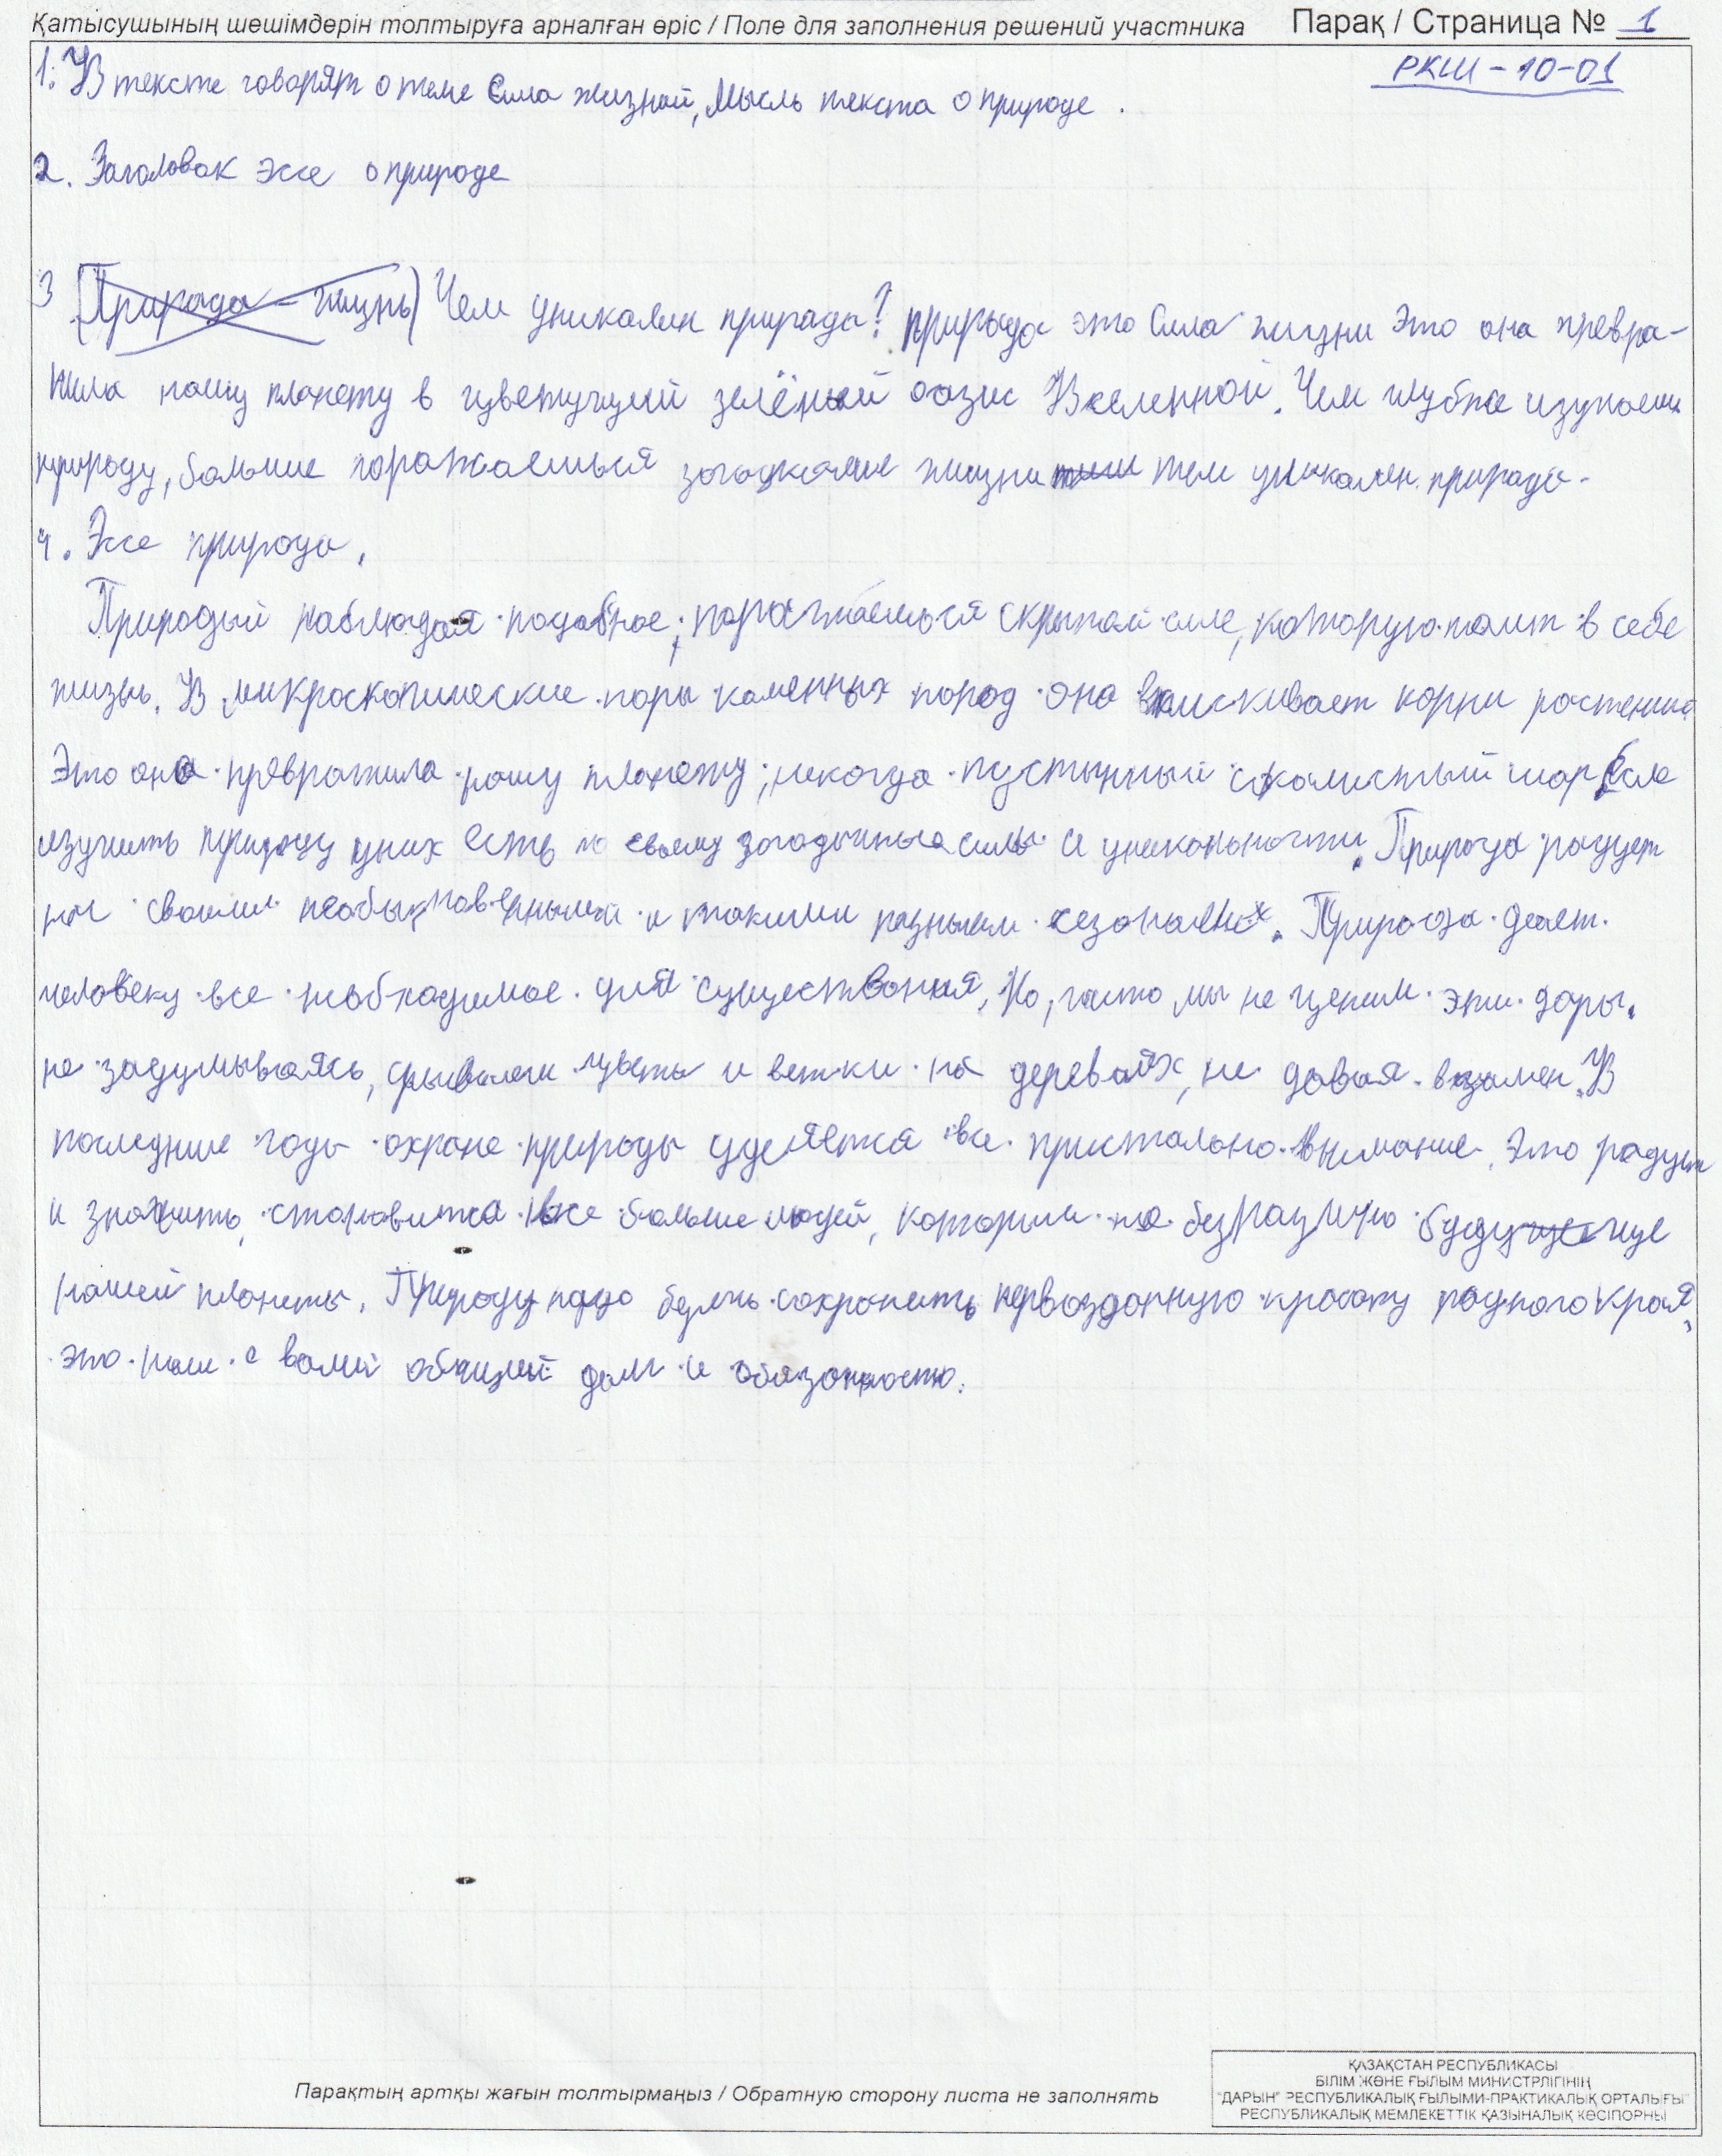 Қатысушының шешімдерін толтыруға арналған өріс / Поле для заполнения решений участника Парақ / Страница № 1
РКШ - 10-01
1. В тексте говорят о теме Сила жизней, Мысль текста о природе .
2. Заголовок эссе о природе
3 (Природа - жизнь) Чем уникален природа? природа это Сила жизни Это она превра-
тила нашу планету в цветущий зелёный оазис Вселенной. Чем глубже изучаешь
природу, больше поражаешься загадками жизни тем уникален природа.
4. Эссе природа.
Природый наблюдая подобное, поражаешься скрытой силе, которую таит в себе
жизнь. В микроскопические поры каменных пород она втискивает корни растений
Это она превратила нашу планету, некогда пустынный скалистый шар Если
изучить природу у них есть по своему загадочные силы и уникальности. Природа радует
нас своими необыкновенными и такими разными сезонами. Природа дает
человеку все необходимое для существования. Но, часто мы не ценим эти дары.
не задумываясь, срываем цветы и ветки на деревьях, не давая взамен. В
последние годы охране природы уделяется все пристально внимание. Это радует
и значить, становится все больше людей, которым не безразлично будущее
нашей планеты. Природу надо беречь сохранить первозданную красоту родного края,
это наш с вами общий долг и обязанность.
Парақтың артқы жағын толтырмаңыз / Обратную сторону листа не заполнять
ҚАЗАҚСТАН РЕСПУБЛИКАСЫ
БІЛІМ ЖӘНЕ ҒЫЛЫМ МИНИСТРЛІГІНІҢ
"ДАРЫН" РЕСПУБЛИКАЛЫҚ ҒЫЛЫМИ-ПРАКТИКАЛЫҚ ОРТАЛЫҒЫ"
РЕСПУБЛИКАЛЫҚ МЕМЛЕКЕТТІК ҚАЗЫНАЛЫҚ КӘСІПОРНЫ